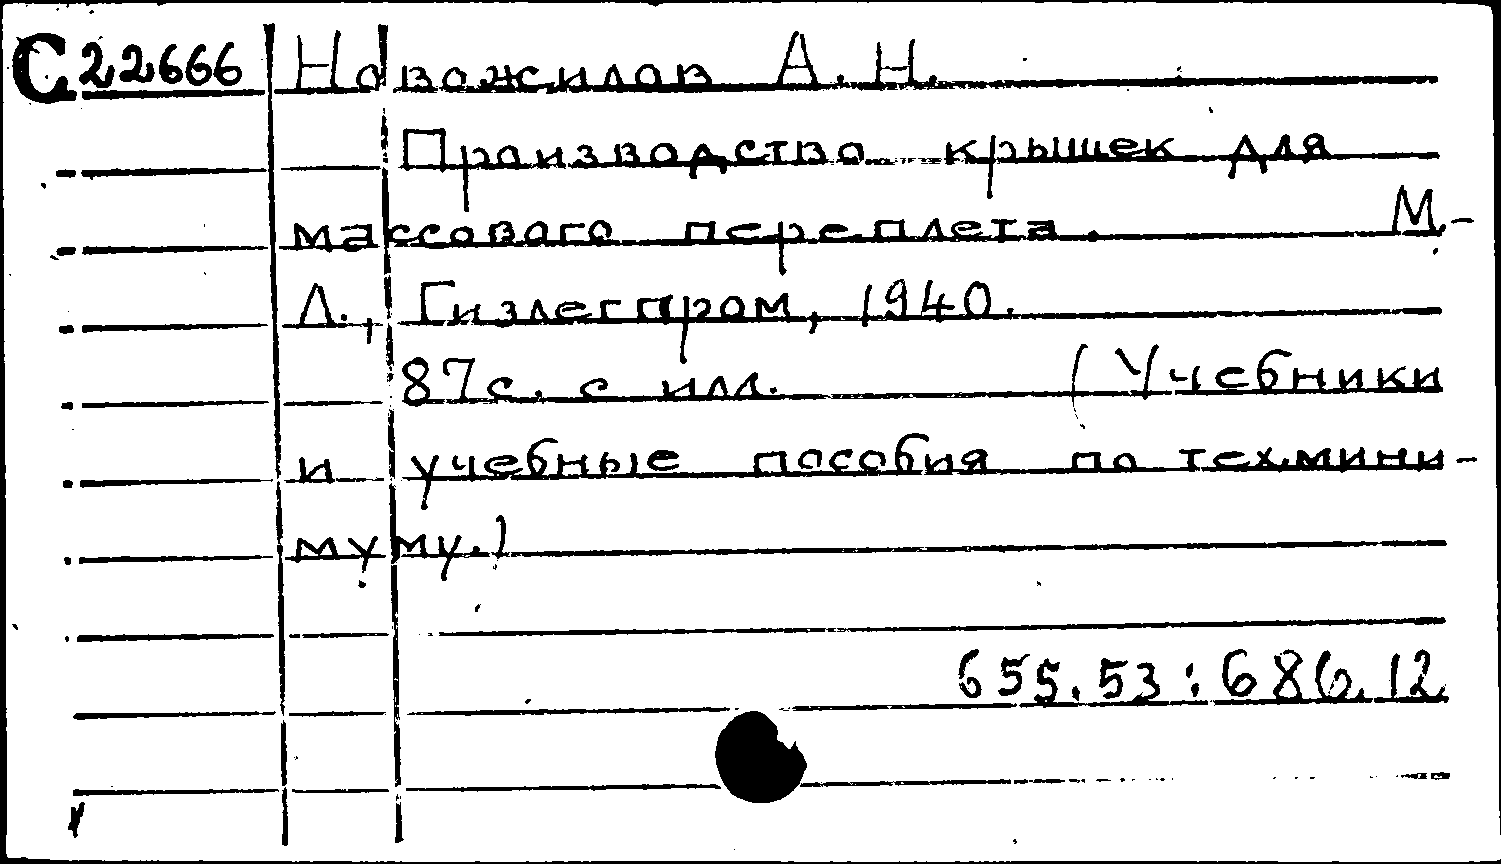 С22666 Новожилов А. Н.
Производство крышек для
массового переплета. М.-
Л., Гизлегпром, 1940.
87с. с илл. (Учебники
и учебные пособия по тех.мини-
муму.)
655.53:686.12